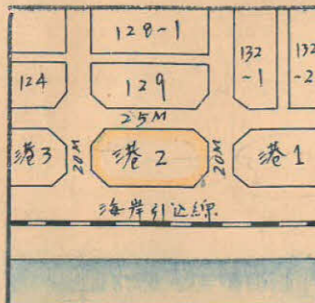 128-1
132-1
132-2
124
129
25M
港3
20M
港2
20M
港1
海岸引込線